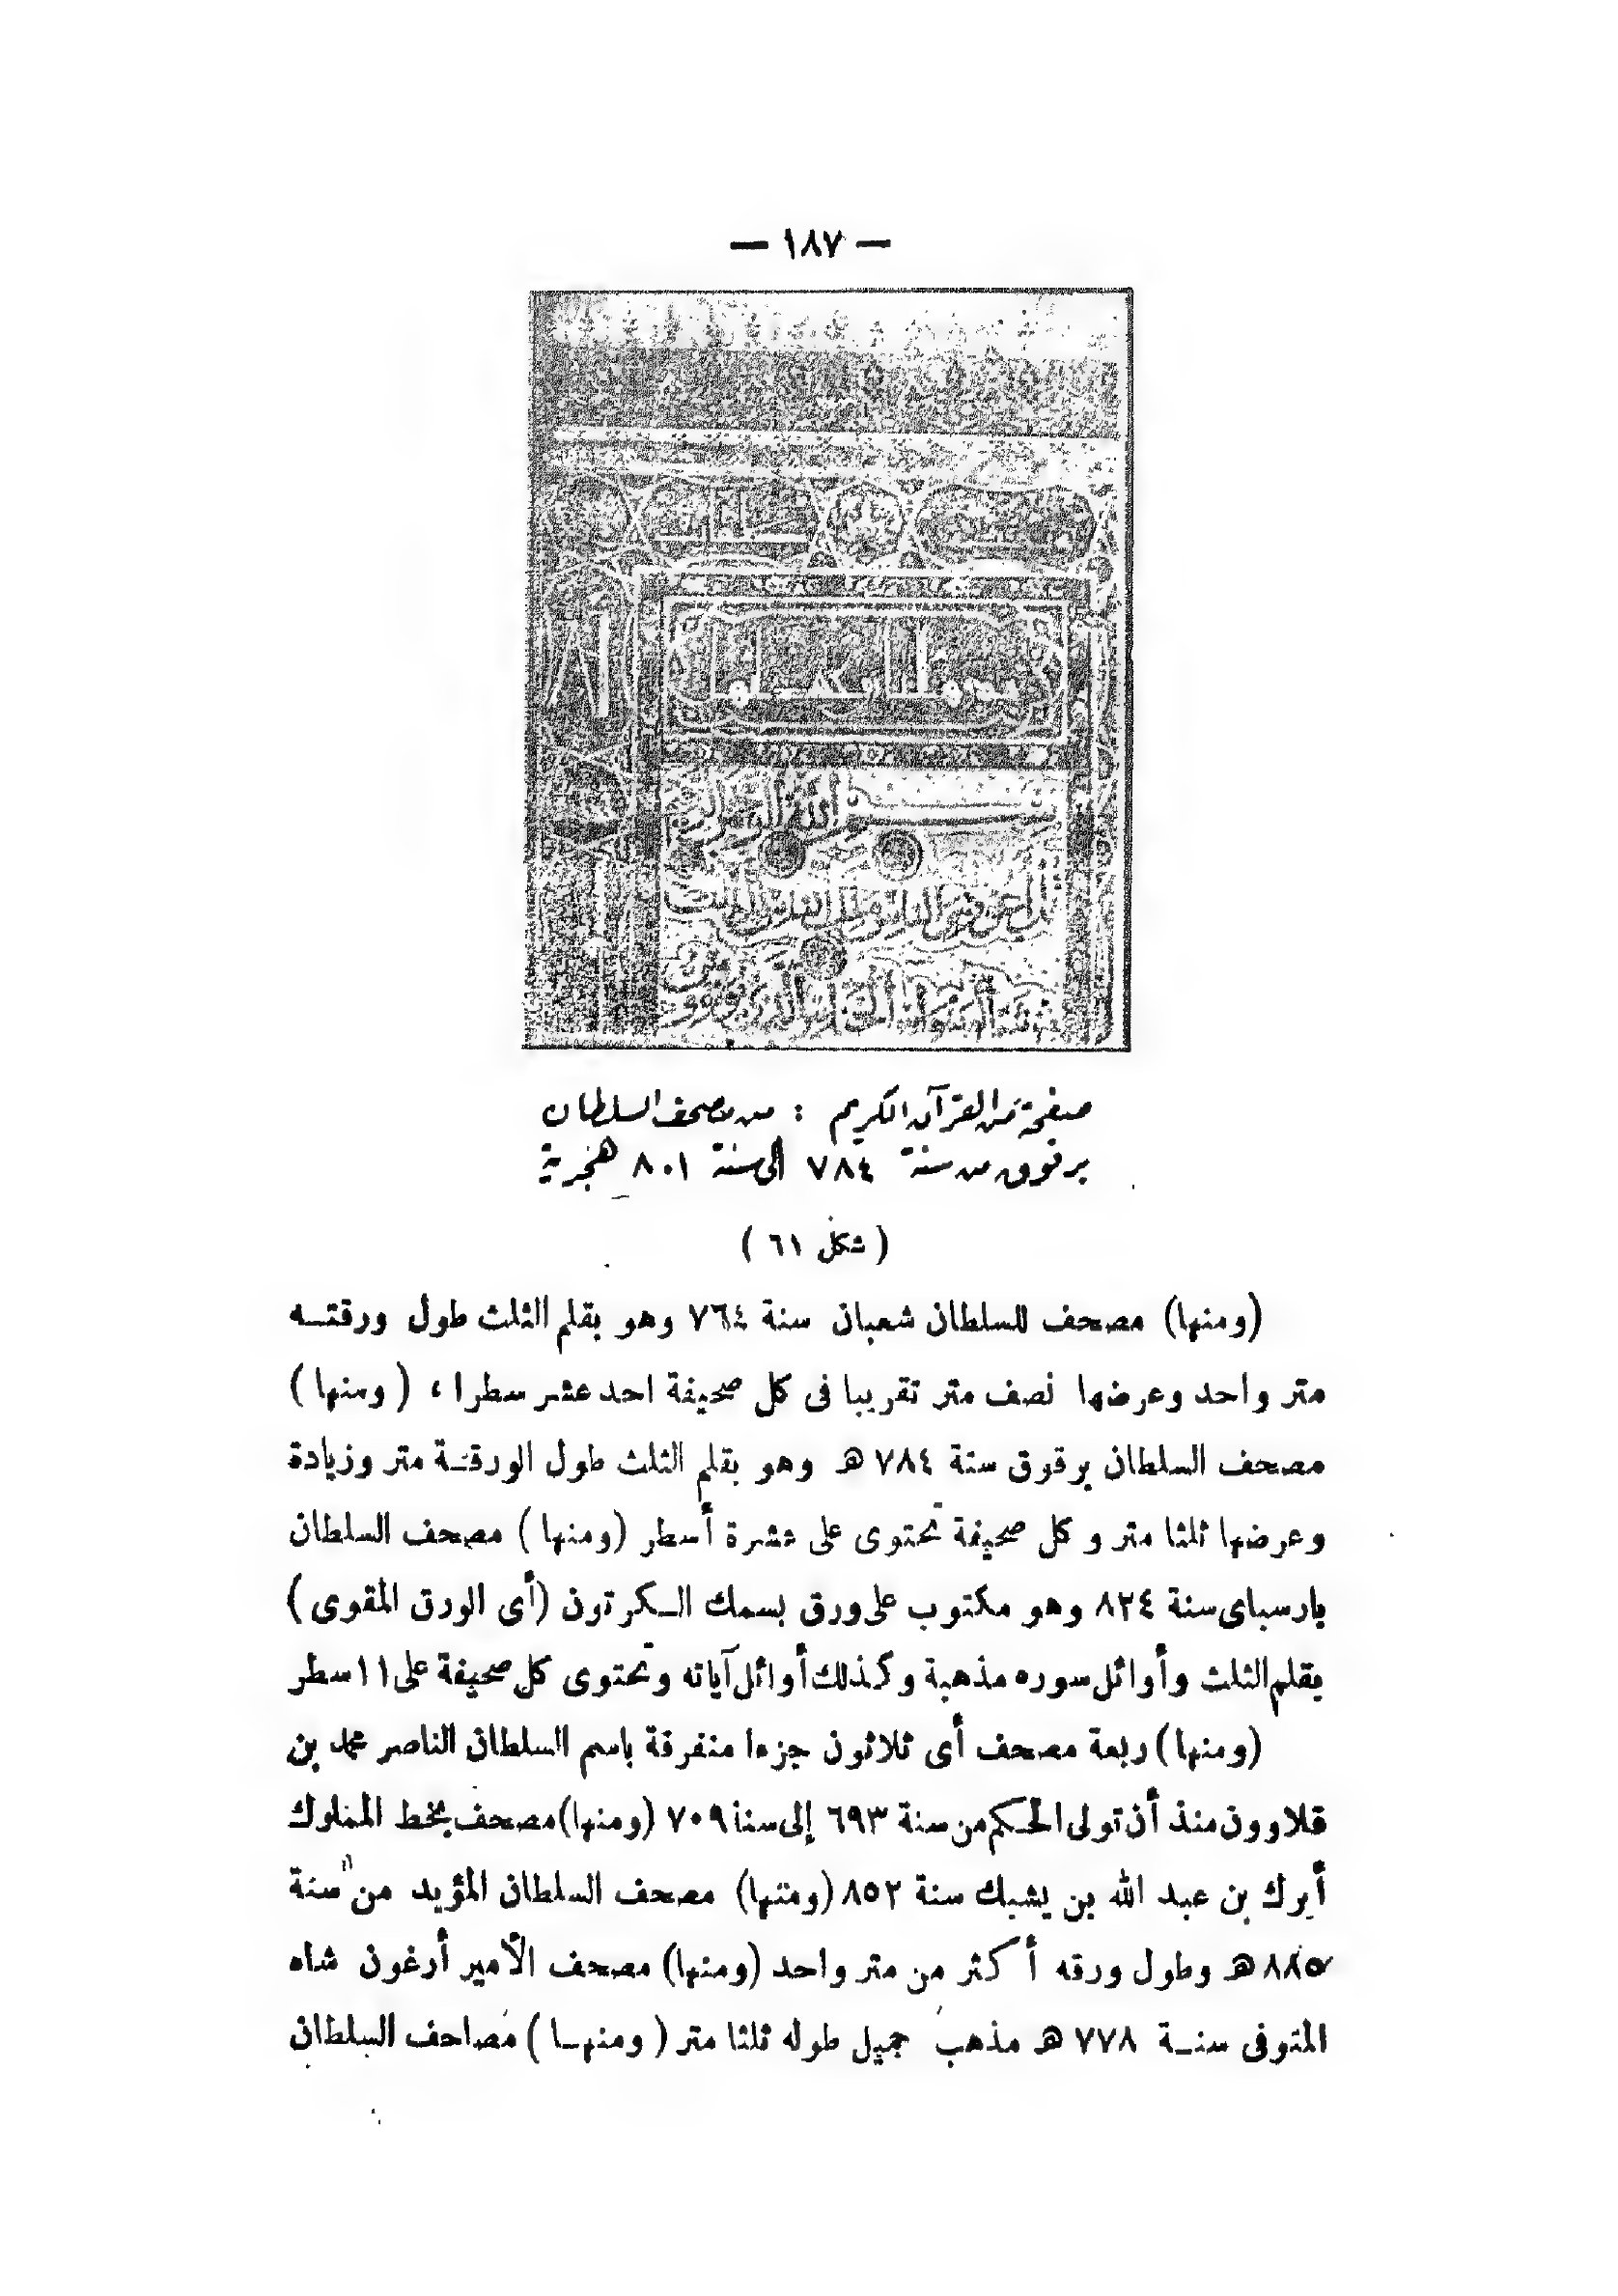 — ١٨٧ —
صفحة من القرآن الكريم : من مصحف السلطان
برقوق من سنة ٧٨٤ الى سنة ٨٠١ هجرية
( شكل ٦١ )
(ومنها) مصحف للسلطان شعبان سنة ٧٦٤ وهو بقلم الثلث طول ورقتـه
متر واحد وعرضها نصف متر تقريبا فى كل صحيفة احد عشر سطرا ، ( ومنها )
مصحف السلطان برقوق سنة ٧٨٤ هـ وهو بقلم الثلث طول الورقـة متر وزيادة
وعرضها ثلثا متر و كل صحيفة تحتوى على عشرة أسطر (ومنها ) مصحف السلطان
بارسباى سنة ٨٢٤ وهو مكتوب على ورق بسمك الـكرتون (أى الورق المقوى )
بقلم الثلث وأوائل سوره مذهبة وكذلك أوائل آياته وتحتوى كل صحيفة على ١١ سطر
(ومنها) ربعة مصحف أى ثلاثون جزءا متفرقة باسم السلطان الناصر محمد بن
قلاوون منذ أن تولى الحـكم من سنة ٦٩٣ إلى سنة ٧٠٩ (ومنها) مصحف بخط المملوك
أبرك بن عبد الله بن يشبك سنة ٨٥٢ (ومنها) مصحف السلطان المؤيد من سنة
٨٨٥ هـ وطول ورقه أكثر من متر واحد (ومنها) مصحف الأمير أرغون شاه
المتوفى سنـة ٧٧٨ هـ مذهب جميل طوله ثلثا متر ( ومنهـا ) مصاحف السلطان